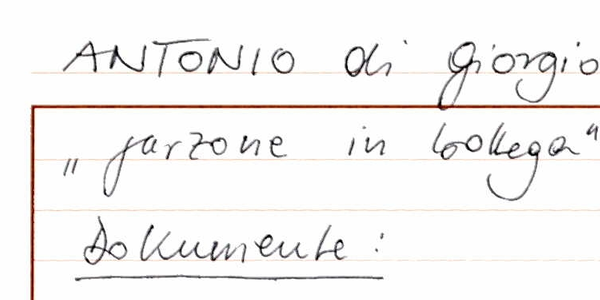 ANTONIO di Giorgio
„garzone in bottega“
Dokumente: